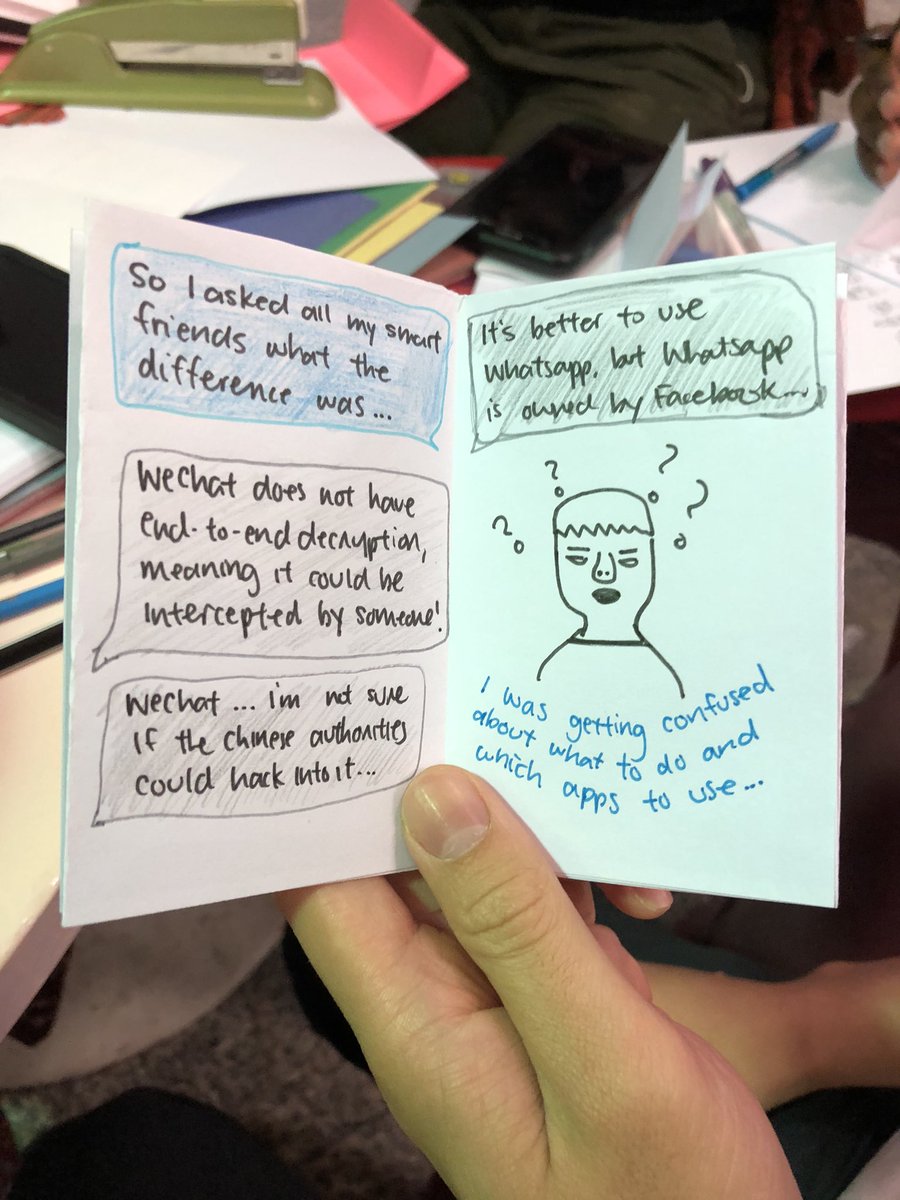 So I asked all my smart
friends what the
difference was...
Wechat does not have
end-to-end decryption,
meaning it could be
intercepted by someone!
Wechat ... i'm not sure
if the chinese authorities
could hack into it...
It's better to use
whatsapp, but Whatsapp
is owned by Facebook...
? ? ? ?
I was getting confused
about what to do and
which apps to use...